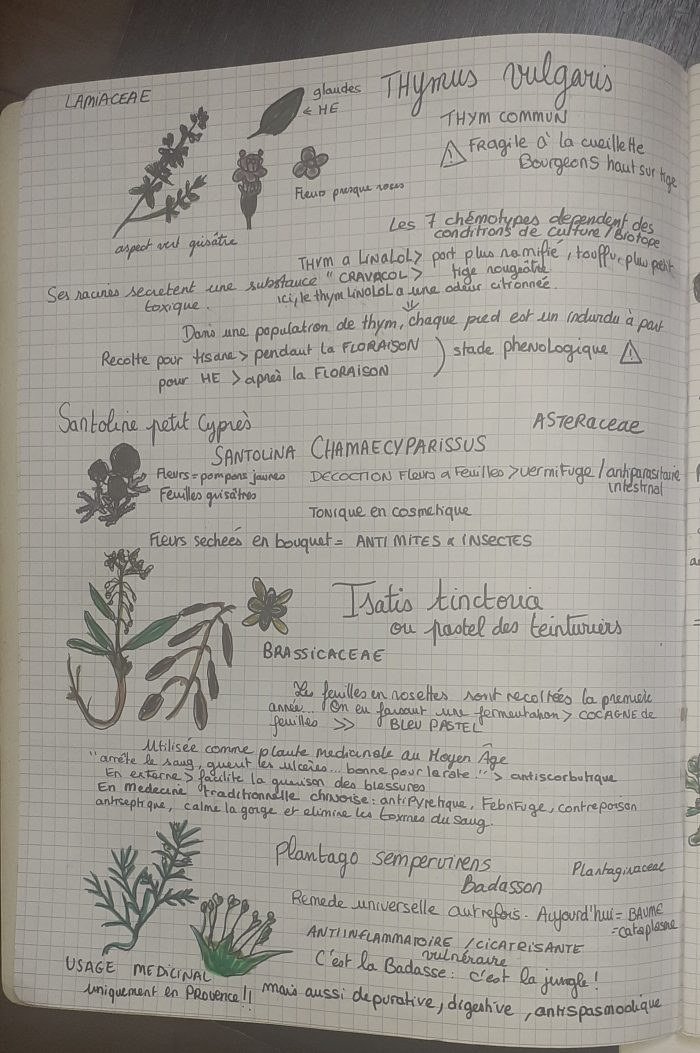 LAMIACEAE
glaudes
← HE
THymus vulgaris
THYM COMMUN
⚠ FRagile à la cueillette
Bourgeons haut sur tige
Fleurs presque roses
aspect vert grisâtre
Les 7 chémotypes dependent des
conditions de culture / Biotope
THYM a LINALOL > port plus ramifié, touffu, plus petit
Ses racines secretent une substance "CRAVACOL > tige rougeâtre
toxique. ici, le thym LINALOL a une odeur citronnée.
Dans une population de thym, chaque pied est un individu à part
Recolte pour tisane > pendant la FLORAISON
pour HE > après la FLORAISON
) stade phenologique ⚠
Santoline petit Cyprès
ASTERaceae
SANTOLINA CHAMAECYPARISSUS
Fleurs = pompons jaunes
Feuilles grisâtres
DECOCTION Fleurs & Feuilles > vermifuge / antiparasitaire
intestinal
TONIQUE en cosmetique
Fleurs sechées en bouquet = ANTI MITES & INSECTES
Isatis tinctoria
ou pastel des teinturiers
BRASSICACEAE
Les feuilles en rosettes sont recoltées la premiere
année... On en faisait une fermentation > COCAGNE de
feuilles >> BLEU PASTEL
Utilisée comme plante medicinale au Moyen Âge
"arrête le sang, guerit les ulcères... bonne pour la rate" > antiscorbutique
En externe > facilite la guerison des blessures
En medecine traditionnelle chinoise: antipyretique, Febrifuge, contrepoison
antiseptique, calme la gorge et elimine les toxines du sang.
Plantago sempervirens
Plantaginaceae
Badasson
Remede universelle autrefois. Aujourd'hui = BAUME
= cataplasme
ANTIINFLAMMATOIRE / CICATRISANTE
vulnéraire
C'est la Badasse: c'est la jungle!
USAGE MEDICINAL
uniquement en Provence!!
mais aussi depurative, digestive, antispasmodique